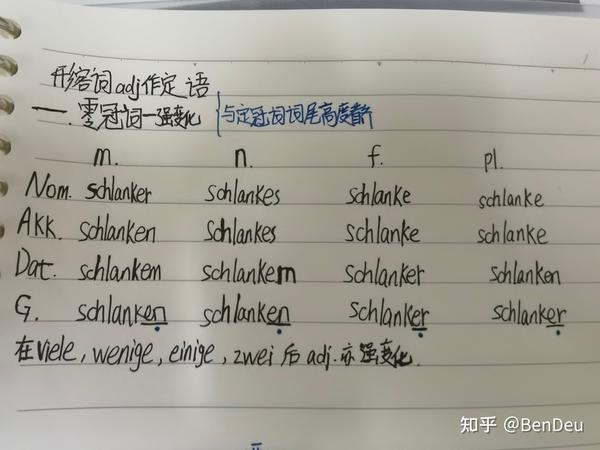 形容词adj作定语
一.零冠词一强变化 与定冠词词尾高度
m. n. f. pl.
Nom. schlanker schlankes schlanke schlanke
AKK. schlanken schlankes schlanke schlanke
Dat. schlankem schlankem schlanker schlanken
G. schlanken schlanken schlanker schlanker
在viele, wenige, einige, zwei后adj.亦强变化.
知乎 @BenDeu